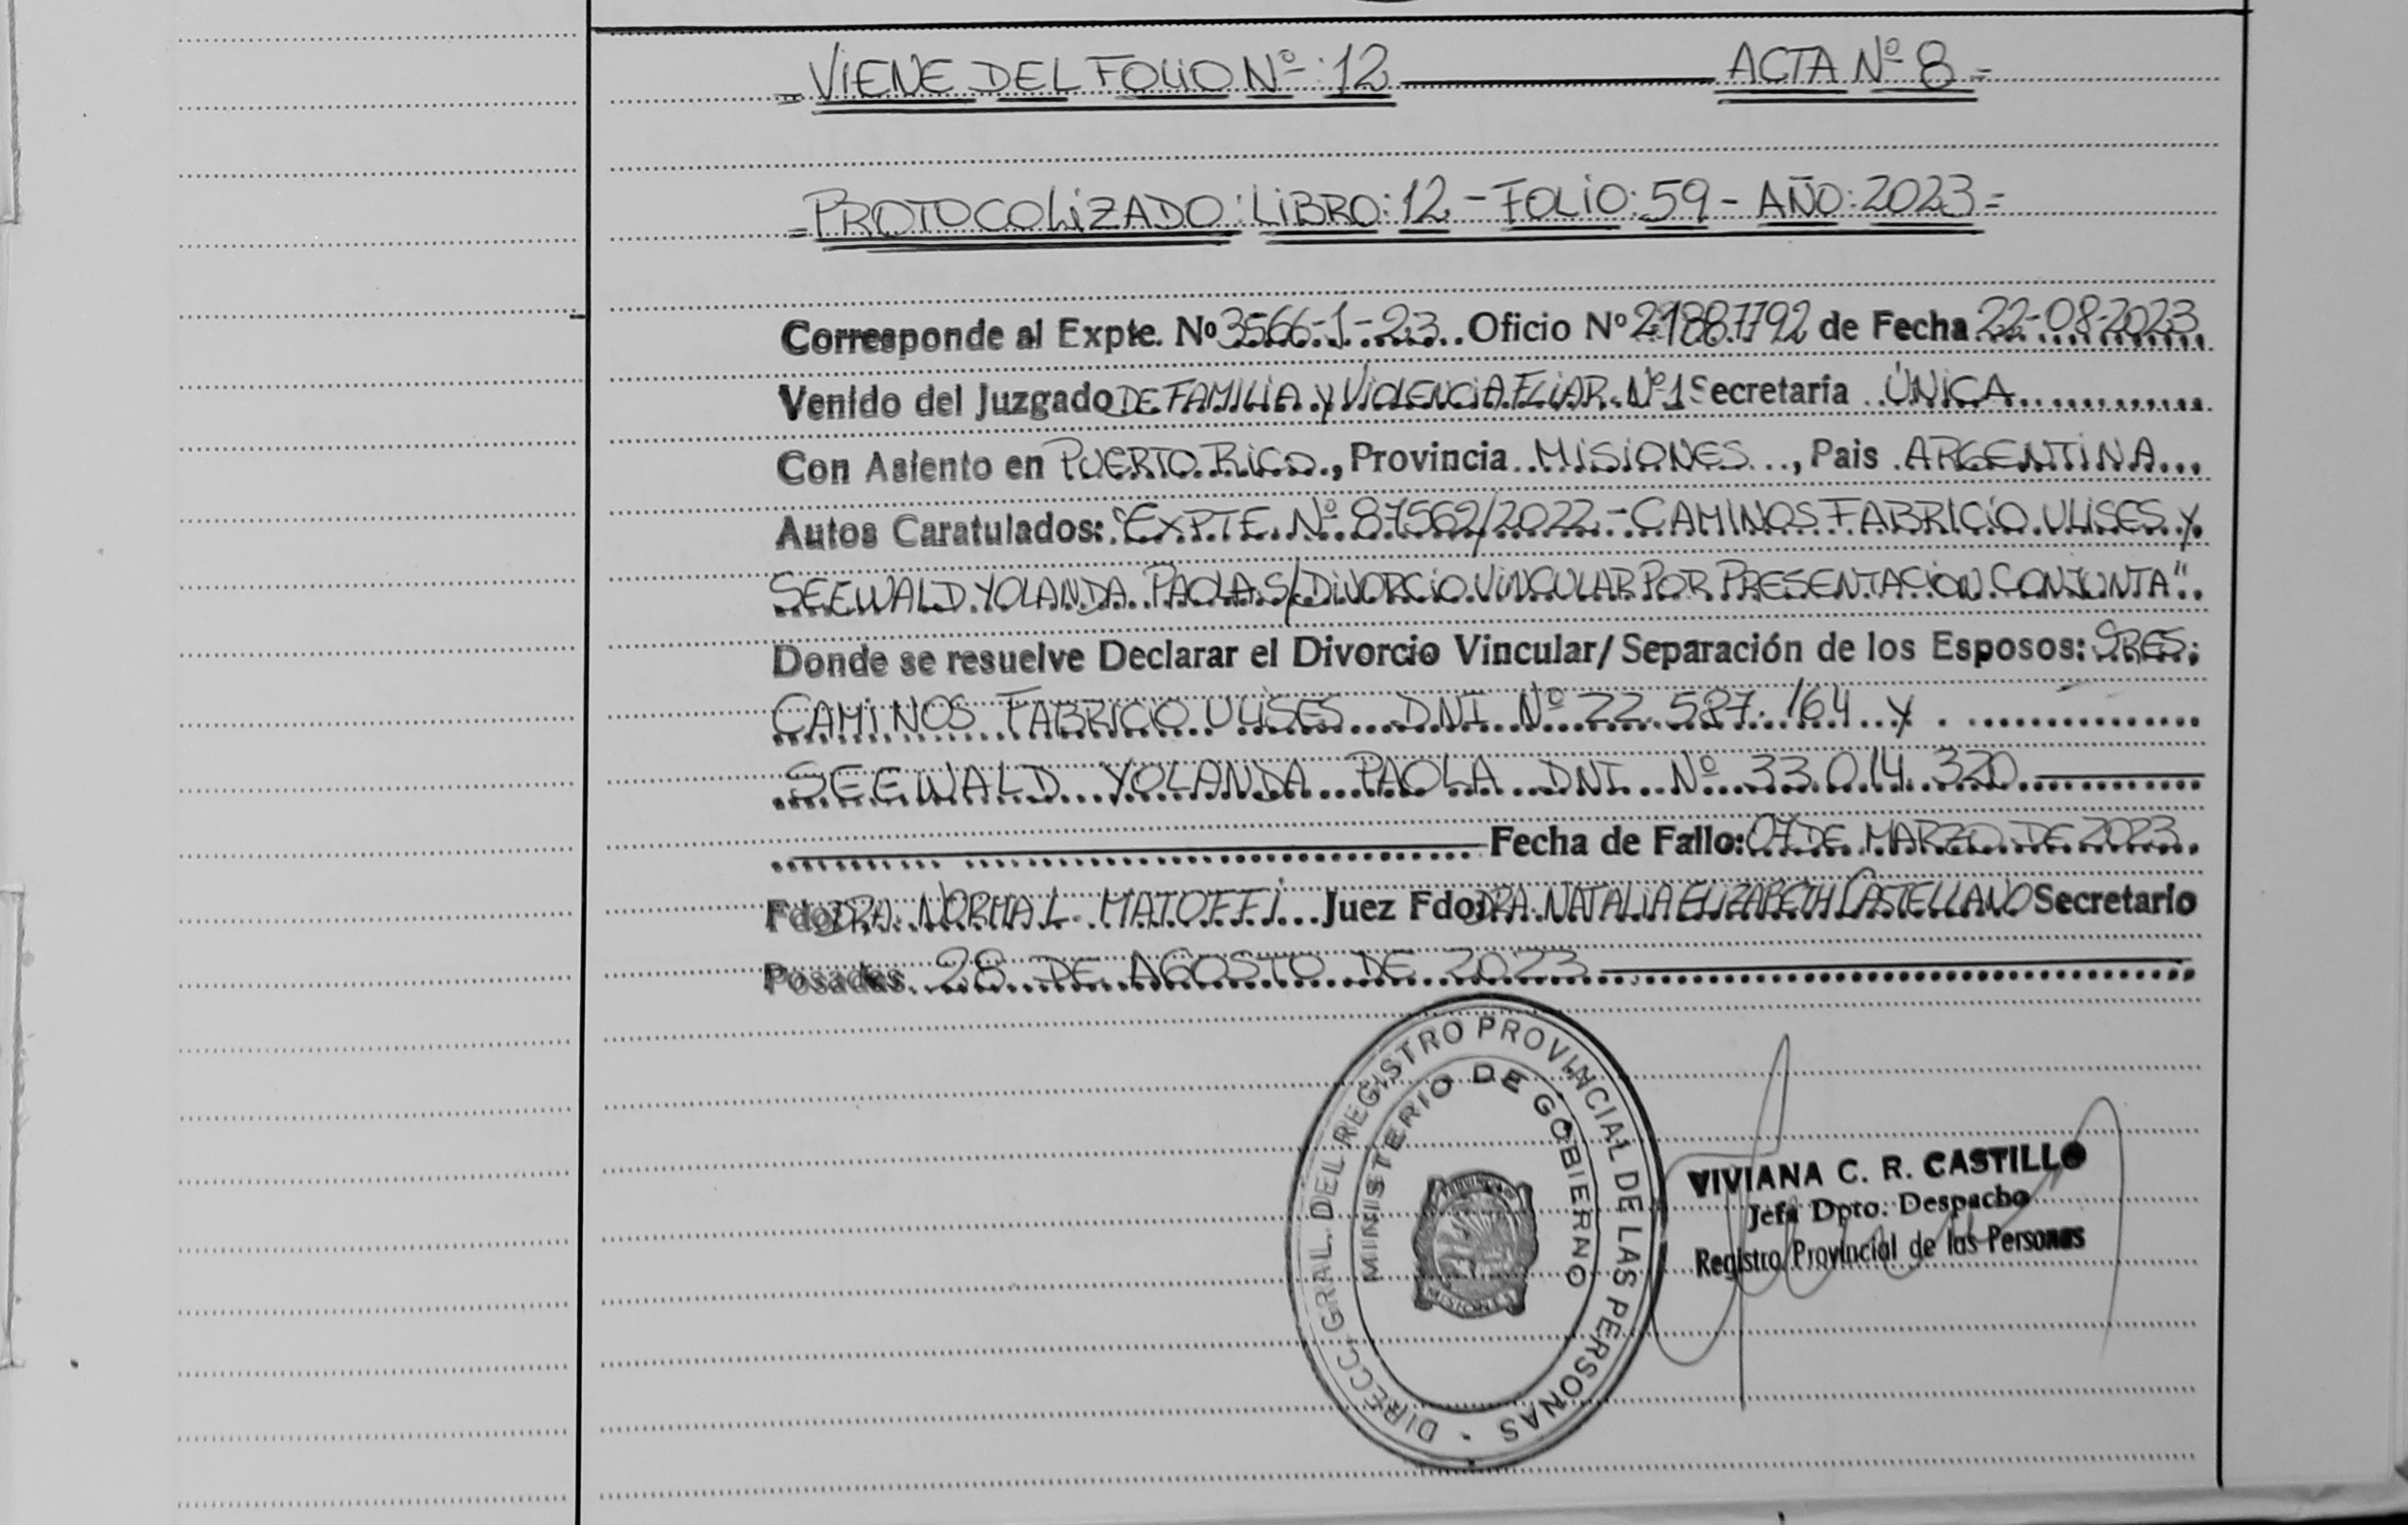 = VIENE DEL FOLIO Nº: 12 ACTA Nº 8 =
= PROTOCOLIZADO: LIBRO: 12 - FOLIO: 59 - AÑO: 2023 =
Corresponde al Expte. Nº 3566-1-23 Oficio Nº 21887792 de Fecha 22-08-2023
Venido del Juzgado DE FAMILIA y VIOLENCIA FLIAR. Nº 1 Secretaría ÚNICA
Con Asiento en PUERTO RICO, Provincia MISIONES, Pais ARGENTINA
Autos Caratulados: "EXPTE. Nº 87562/2022 - CAMINOS FABRICIO ULISES y
SEEWALD YOLANDA PAOLA S/ DIVORCIO VINCULAR POR PRESENTACION CONJUNTA"
Donde se resuelve Declarar el Divorcio Vincular/Separación de los Esposos: SRES.
CAMINOS FABRICIO ULISES DNI Nº 22.587.164 y
SEEWALD YOLANDA PAOLA DNI Nº 33.014.320
Fecha de Fallo: 07 DE MARZO DE 2023
Fdo: DRA. NORMA L. MATOFFI Juez Fdo: DRA. NATALIA ELIZABETH CASTELLANO Secretario
Posadas 28 DE AGOSTO DE 2023
DIRECC. GRAL. DEL REGISTRO PROVINCIAL DE LAS PERSONAS
MINISTERIO DE GOBIERNO
MISIONES
VIVIANA C. R. CASTILLO
Jefa Dpto. Despacho
Registro Provincial de las Personas